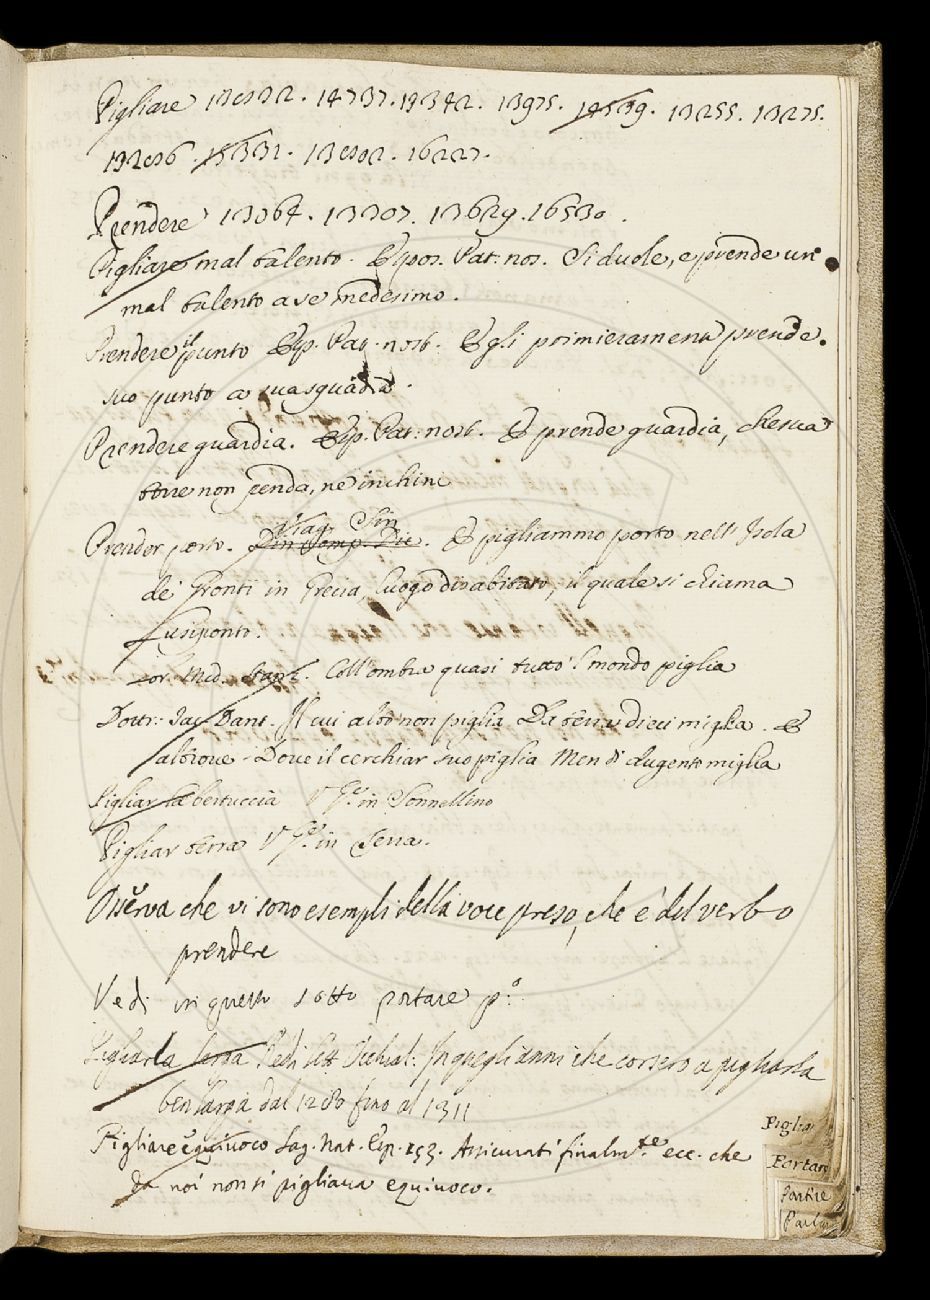 Pigliare 14737. 19342. 13975. 14539. 13255. 13275.
15331. 16227.
Prendere 13064. 13307. 13629. 16530.
Pigliare mal talento. Espos. Pat: nos. Si duole, e prende un
mal talento a se medesimo.
Prendere il punto Esp. Pat. nost. Egli primieramente prende.
suo punto a sua sguadra.
Prendere guardia. Esp. Pat: nost. E prende guardia, che sua
torre non penda, ne inchini
Prender porto. Viag. Sin. E pigliammo porto nell' Isola
de' Gronti in Grecia, luogo disabitato, il quale si chiama
Lor. Med. Coll' ombra quasi tutto 'l mondo piglia
Dottr: Iac. Dant. Il cui alto non piglia Da terra dieci miglia. E
altrove. Dove il cerchiar suo piglia Men di dugento miglia
Pigliar la bertuccia in Sonnellino
Pigliar terra in Terra.
Osserva che vi sono esempli della voce preso, che è del verbo
prendere
Vedi in questo sotto portare p.º
Pigliarla Redi lett In quegli anni che corsero a pigliarla
ben larga dal 1280 fino al 1311
Pigliare equivoco Sag. Nat. Esp. 153. Assicurati finalm.te ecc. che
da noi non si pigliava equivoco.
Piglia
Portare
Partire